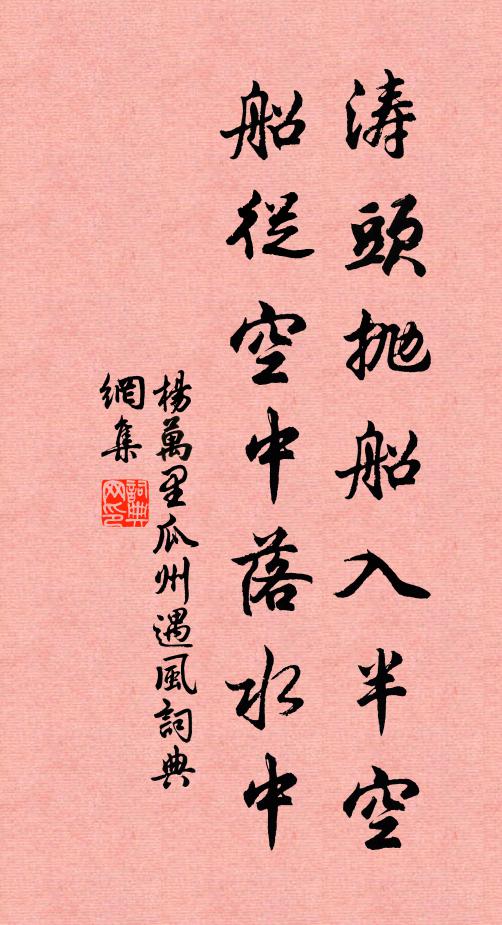 濤頭拋船入半空
船從空中落水中
楊萬里瓜州遇風詞典
網集
詞典
网印